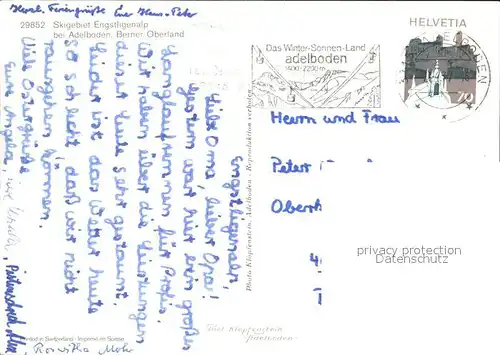 Herzl. Feriengrüße Eure Hans-Peter
29852 Skigebiet Engstligenalp
bei Adelboden, Berner Oberland
HELVETIA
Das Winter-Sonnen-Land
adelboden
1400-2200 m
70
Engstligenalp,
Liebe Oma, lieber Opa!
Gestern war hier ein großes
Langlaufrennen für Profis.
Wir haben über die Leistungen
dieser Leute sehr gestaunt.
Leider ist das Wetter heute
so schlecht, daß wir nicht
rausgehen können.
Viele Ostergrüße
Eure Angela,
Roswitha Mohr
Herrn und Frau
Peter
Oberh
privacy protection
Datenschutz
Photo Klopfenstein, Adelboden - Reproduktion verboten
Printed in Switzerland - Imprimé en Suisse
Klopfenstein
Adelboden